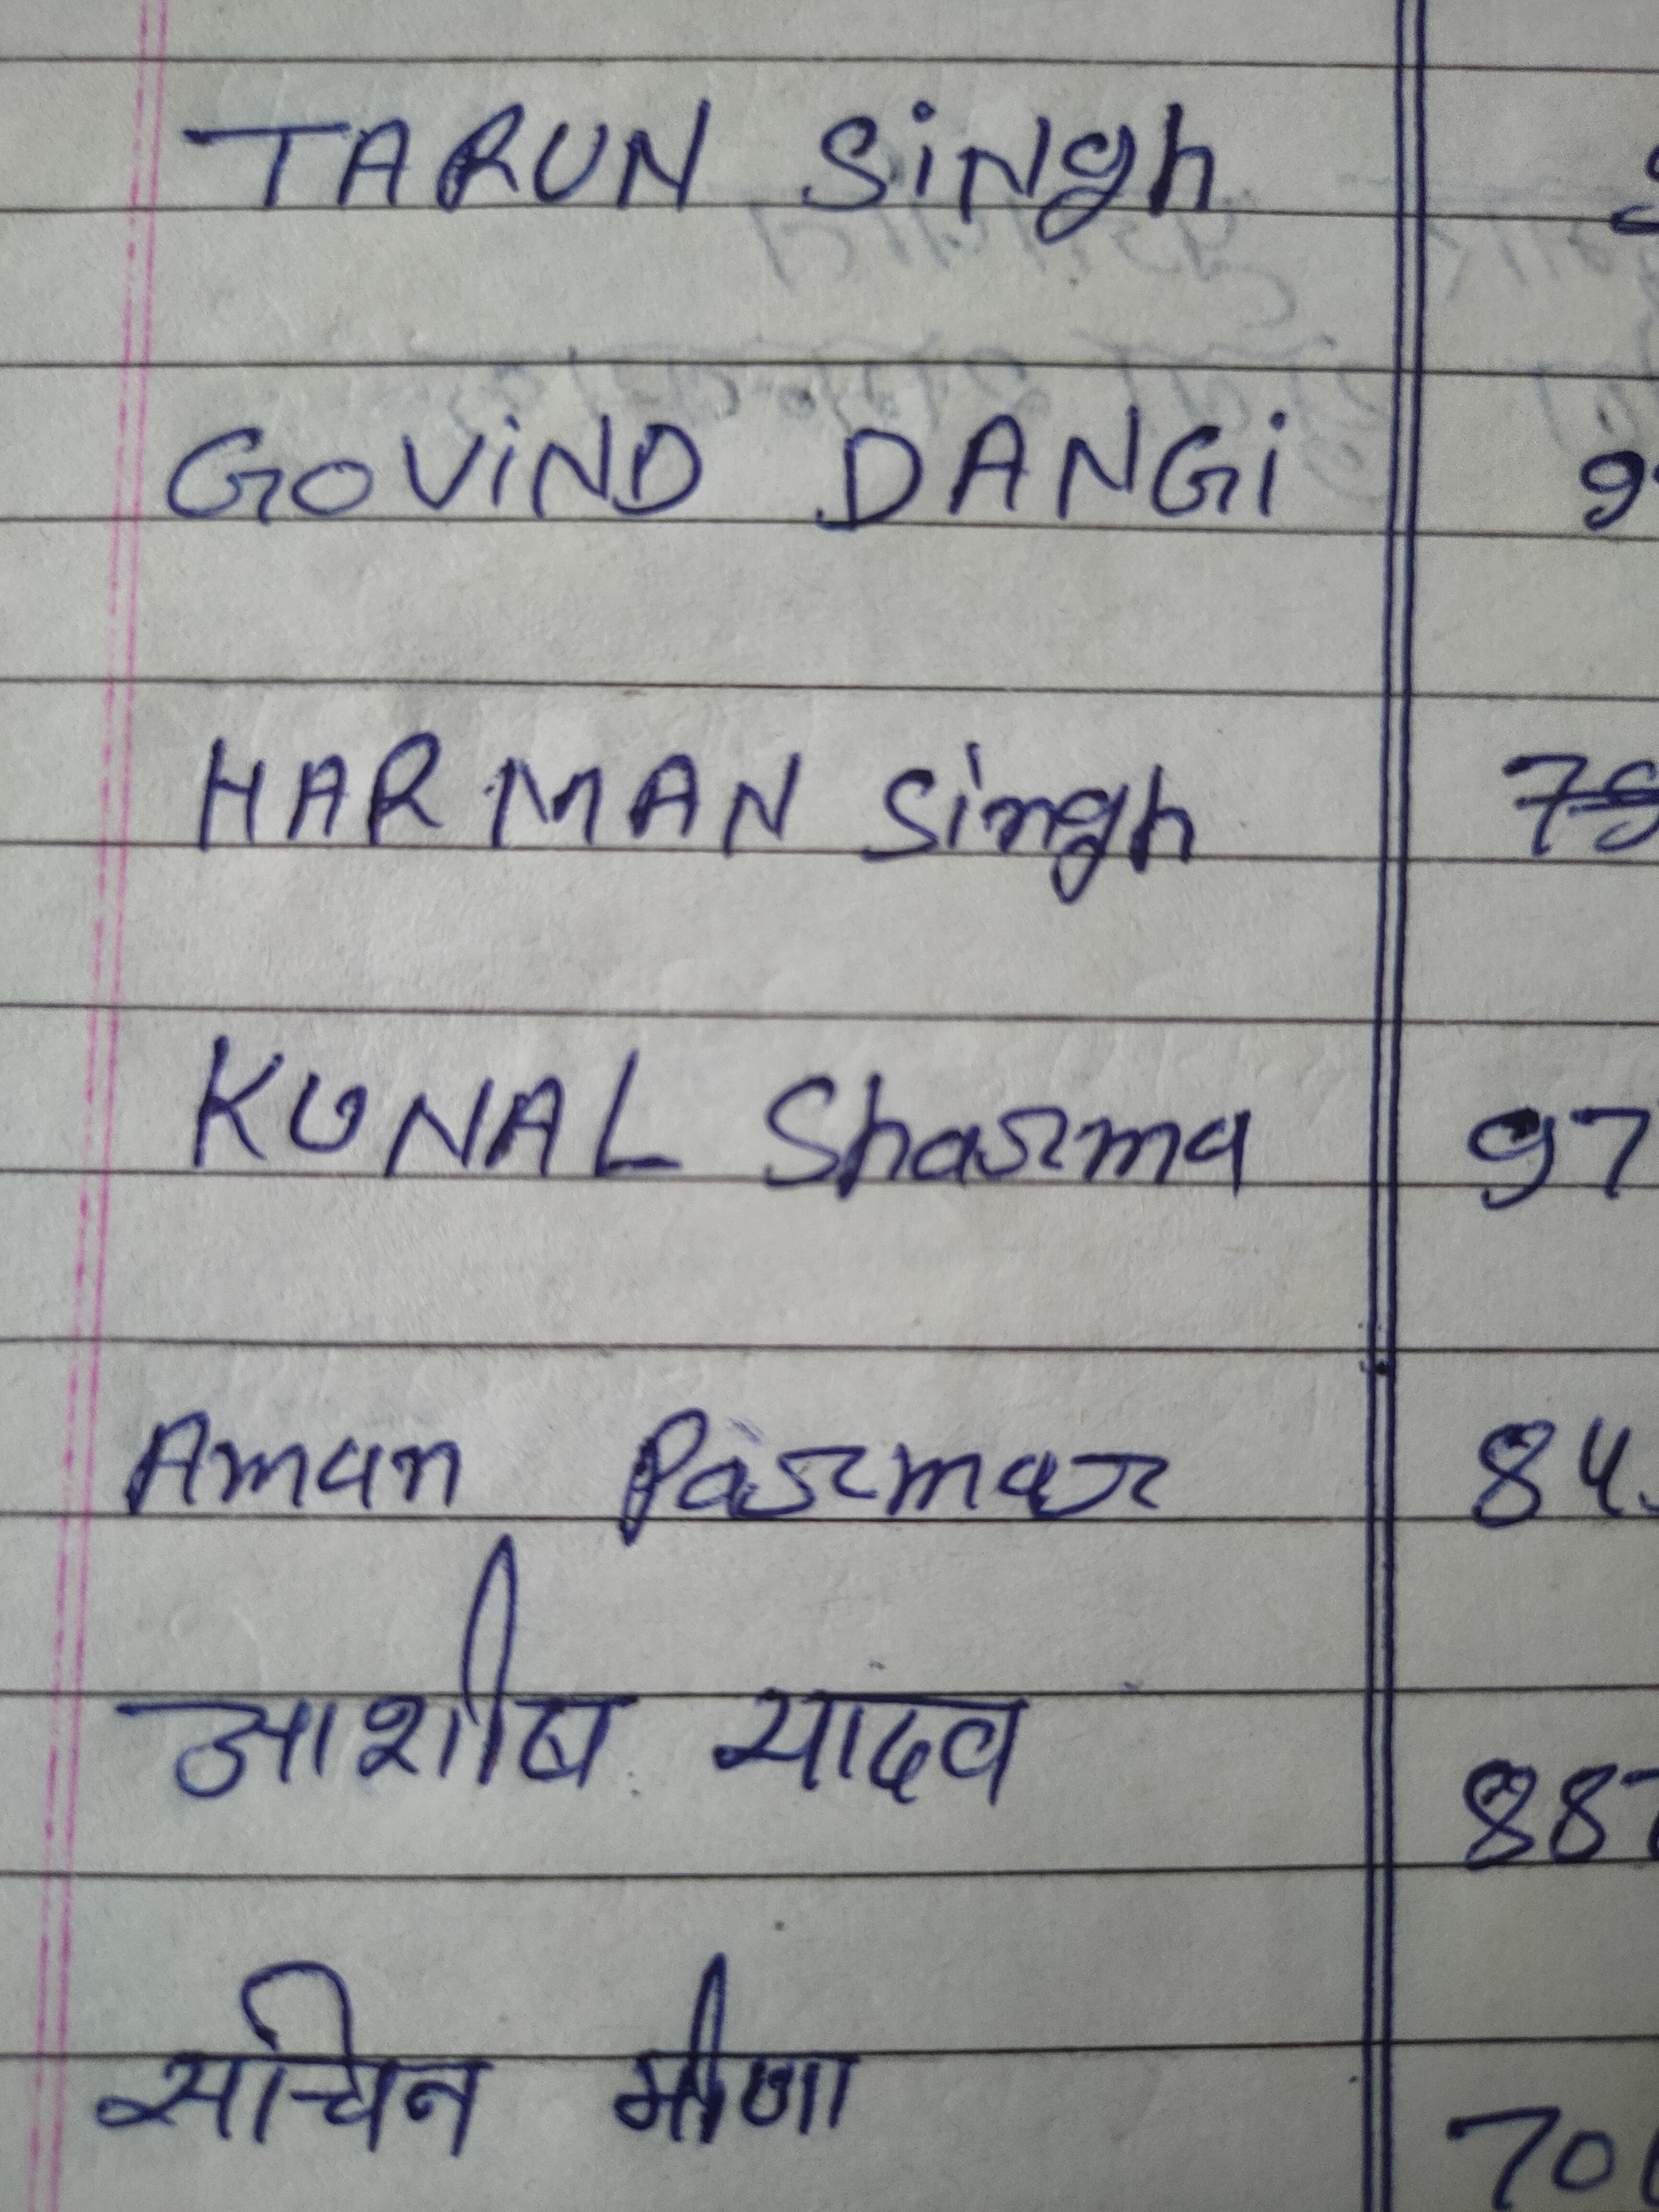 TARUN SiNgh
GOVIND DANGi 9
HARMAN Singh
KUNAL Sharma 97
Aman Parmar 84
आशीष यादव 887
सचिन मीणा 70